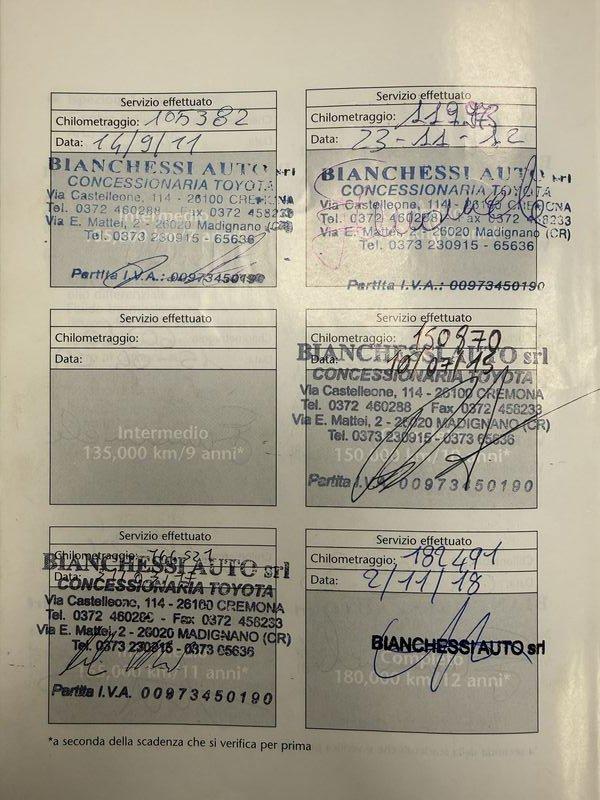 Servizio effettuato
Chilometraggio: 105382
Data: 14/9/11
BIANCHESSI AUTO srl
CONCESSIONARIA TOYOTA
Via Castelleone, 114 - 26100 CREMONA
Tel. 0372 460288 Fax 0372 458233
Via E. Mattei, 2 - 26020 Madignano (CR)
Tel. 0373 230915 - 65636
Partita I.V.A.: 00973450190
Servizio effettuato
Chilometraggio:
Data: 23-11-12
BIANCHESSI AUTO srl
CONCESSIONARIA TOYOTA
Via Castelleone, 114 - 26100 CREMONA
Tel. 0372 460288 Fax 0372 458233
Via E. Mattei, 2 - 26020 Madignano (CR)
Tel. 0373 230915 - 65636
Partita I.V.A.: 00973450190
Servizio effettuato
Chilometraggio:
Data:
Intermedio
135,000 km/9 anni*
Servizio effettuato
150970
Data: 10/07/15
BIANCHESSI AUTO srl
CONCESSIONARIA TOYOTA
Via Castelleone, 114 - 26100 CREMONA
Tel. 0372 460288 Fax 0372 458233
Via E. Mattei, 2 - 26020 MADIGNANO (CR)
Tel. 0373 230915 - 0373 65636
Partita I.V.A. 00973450190
Servizio effettuato
Chilometraggio:
Data:
BIANCHESSI AUTO srl
CONCESSIONARIA TOYOTA
Via Castelleone, 114 - 26100 CREMONA
Tel. 0372 460288 - Fax 0372 458233
Via E. Mattei, 2 - 26020 MADIGNANO (CR)
Tel. 0373 230915 - 0373 65636
km/11 anni*
Partita I.V.A. 00973450190
Servizio effettuato
Chilometraggio: 182491
Data: 2/11/18
BIANCHESSI AUTO srl
Completo
180,000 km/12 anni*
*a seconda della scadenza che si verifica per prima